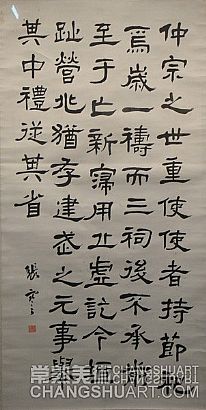 仲宗之世重使使者持節祀
焉歲一禱而三祠後不承前
至于亡新寖用丘虛訖今垣
趾營兆猶存建武之元事舉
其中禮從其省
張
CHANGSHUART.COM